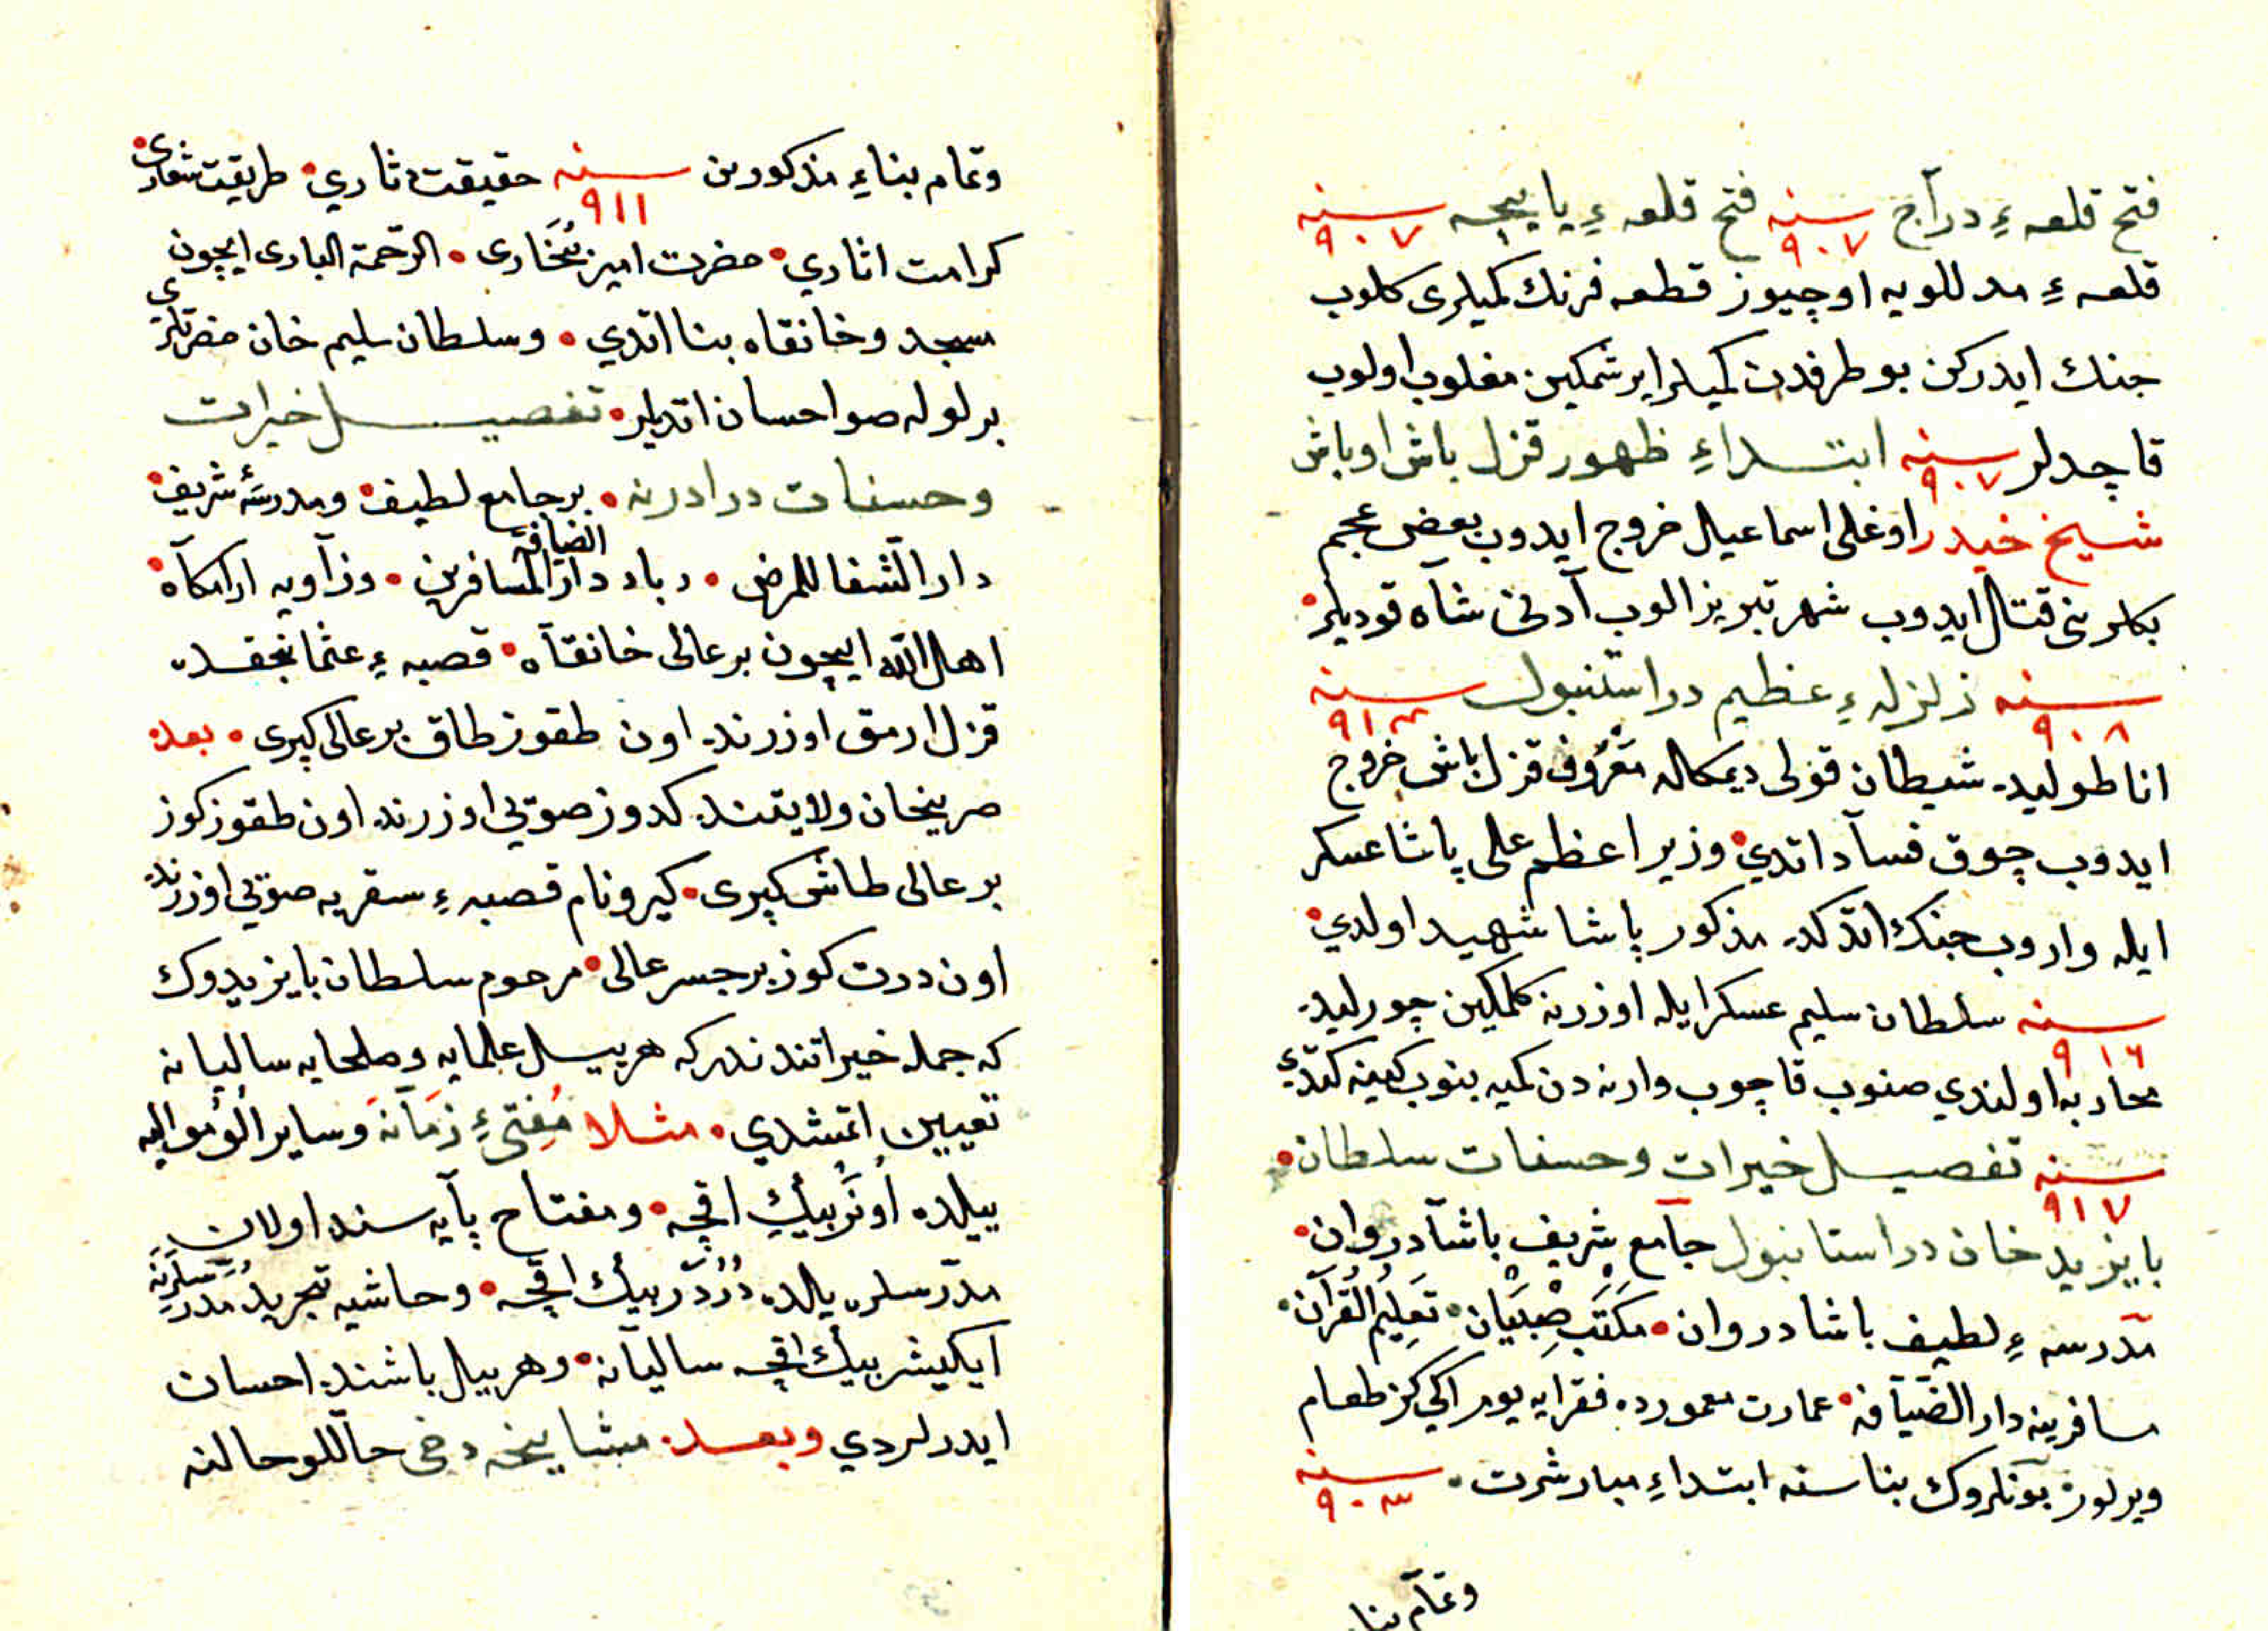 فتح قلعه ءِ دراج سنه ٩٠٧ فتح قلعه ءِ يا يچه سنه ٩٠٧
قلعه ءِ مد للويه اوچيوز قطعه فرنك كميلرى كلوب
جنك ايدركن بو طرفدن كميلر ايرشمكين مغلوب اولوب
قاچديلر سنه ٩٠٧ ابتداءِ ظهور قزل باش اوباش
شيخ حيدر اوغلى اسماعيل خروج ايدوب بعض عجم
بكلرنى قتال ايدوب شهر تبريز الوب آدنى شاه قوديلر
سنه ٩٠٨ زلزله ءِ عظيم در استنبول سنه ٩١٣
اناطوليده شيطان قولى ديمكله مَعْرُوف قزل باش خروج
ايدوب چوق فساد اتدي وزير اعظم على پاشا عسكر
ايله واروب جنك اتدكده مذكور پاشا شهيد اولدي
سنه ٩١٦ سلطان سليم عسكر ايله اوزرنه كلمكين چورليده
محاربه اولندي صنوب قاچوب وارنه دن كميه بنوب كفيه كتدي
سنه ٩١٧ تفصيل خيرات وحسنات سلطان
بايزيد خان در استانبول جامع شريف باشادروان
مدرسه ءِ لطيف باشادروان مَكْتَب صِبْيَان تَعلِيمُ القُرآن
مسافرينه دار الضيافه عمارت معموره ده فقرايه يومه ايكي كز طعام
ويرلور بونلروك بناسنه ابتداءِ مباشرت سنه ٩٠٣
وتمام بنا
وتمام بناءِ مذكورين سنه ٩١١ حقيقت دثاري طريقت شعارى
كرامت اثاري حضرت امير بُخَارى الرحمة البارى ايچون
مسجد وخانقاه بنا اتدي وسلطان سليم خان حضرتلرى
بر لوله صو احسان اتديلر تفصيل خيرات
وحسنات در ادرنه بر جامع لطيف ومدرسهٔ شريف
دار الشفا للمرضى وباد دار الضيافة المسافرين وزاويه ارامكاه
اهل الله ايچون بر عالى خانقاه قصبه ءِ عثمانجقده
قزل ارمق اوزرنده اون طقوز طاق بر عالى كپرى بعده
صريخان ولايتنده كدوز صويى اوزرنده اون طقوز كوز
بر عالى طاش كپرى كيرو نام قصبه ءِ سقريه صويى اوزرنده
اون درت كوز بر جسر عالى مرحوم سلطان بايزيدوك
كه جمله خيراتندندر كه هر ييل علمايه وصلحايه ساليانه
تعيين اتمشدي مثلا مُفتىءِ زمانه وساير اولو مواليه
ييلده اونَر بيڭ اقچه ومفتاح پايه سنده اولان
مدرسلره ييلده دُردَر بيڭ اقچه وحاشيه تجريد مدرسلرينه
ايكيشر بيڭ اقچه ساليانه وهر ييل باشنده احسان
ايدرلردي وبعده مشايخه دخى حاللو حالنه